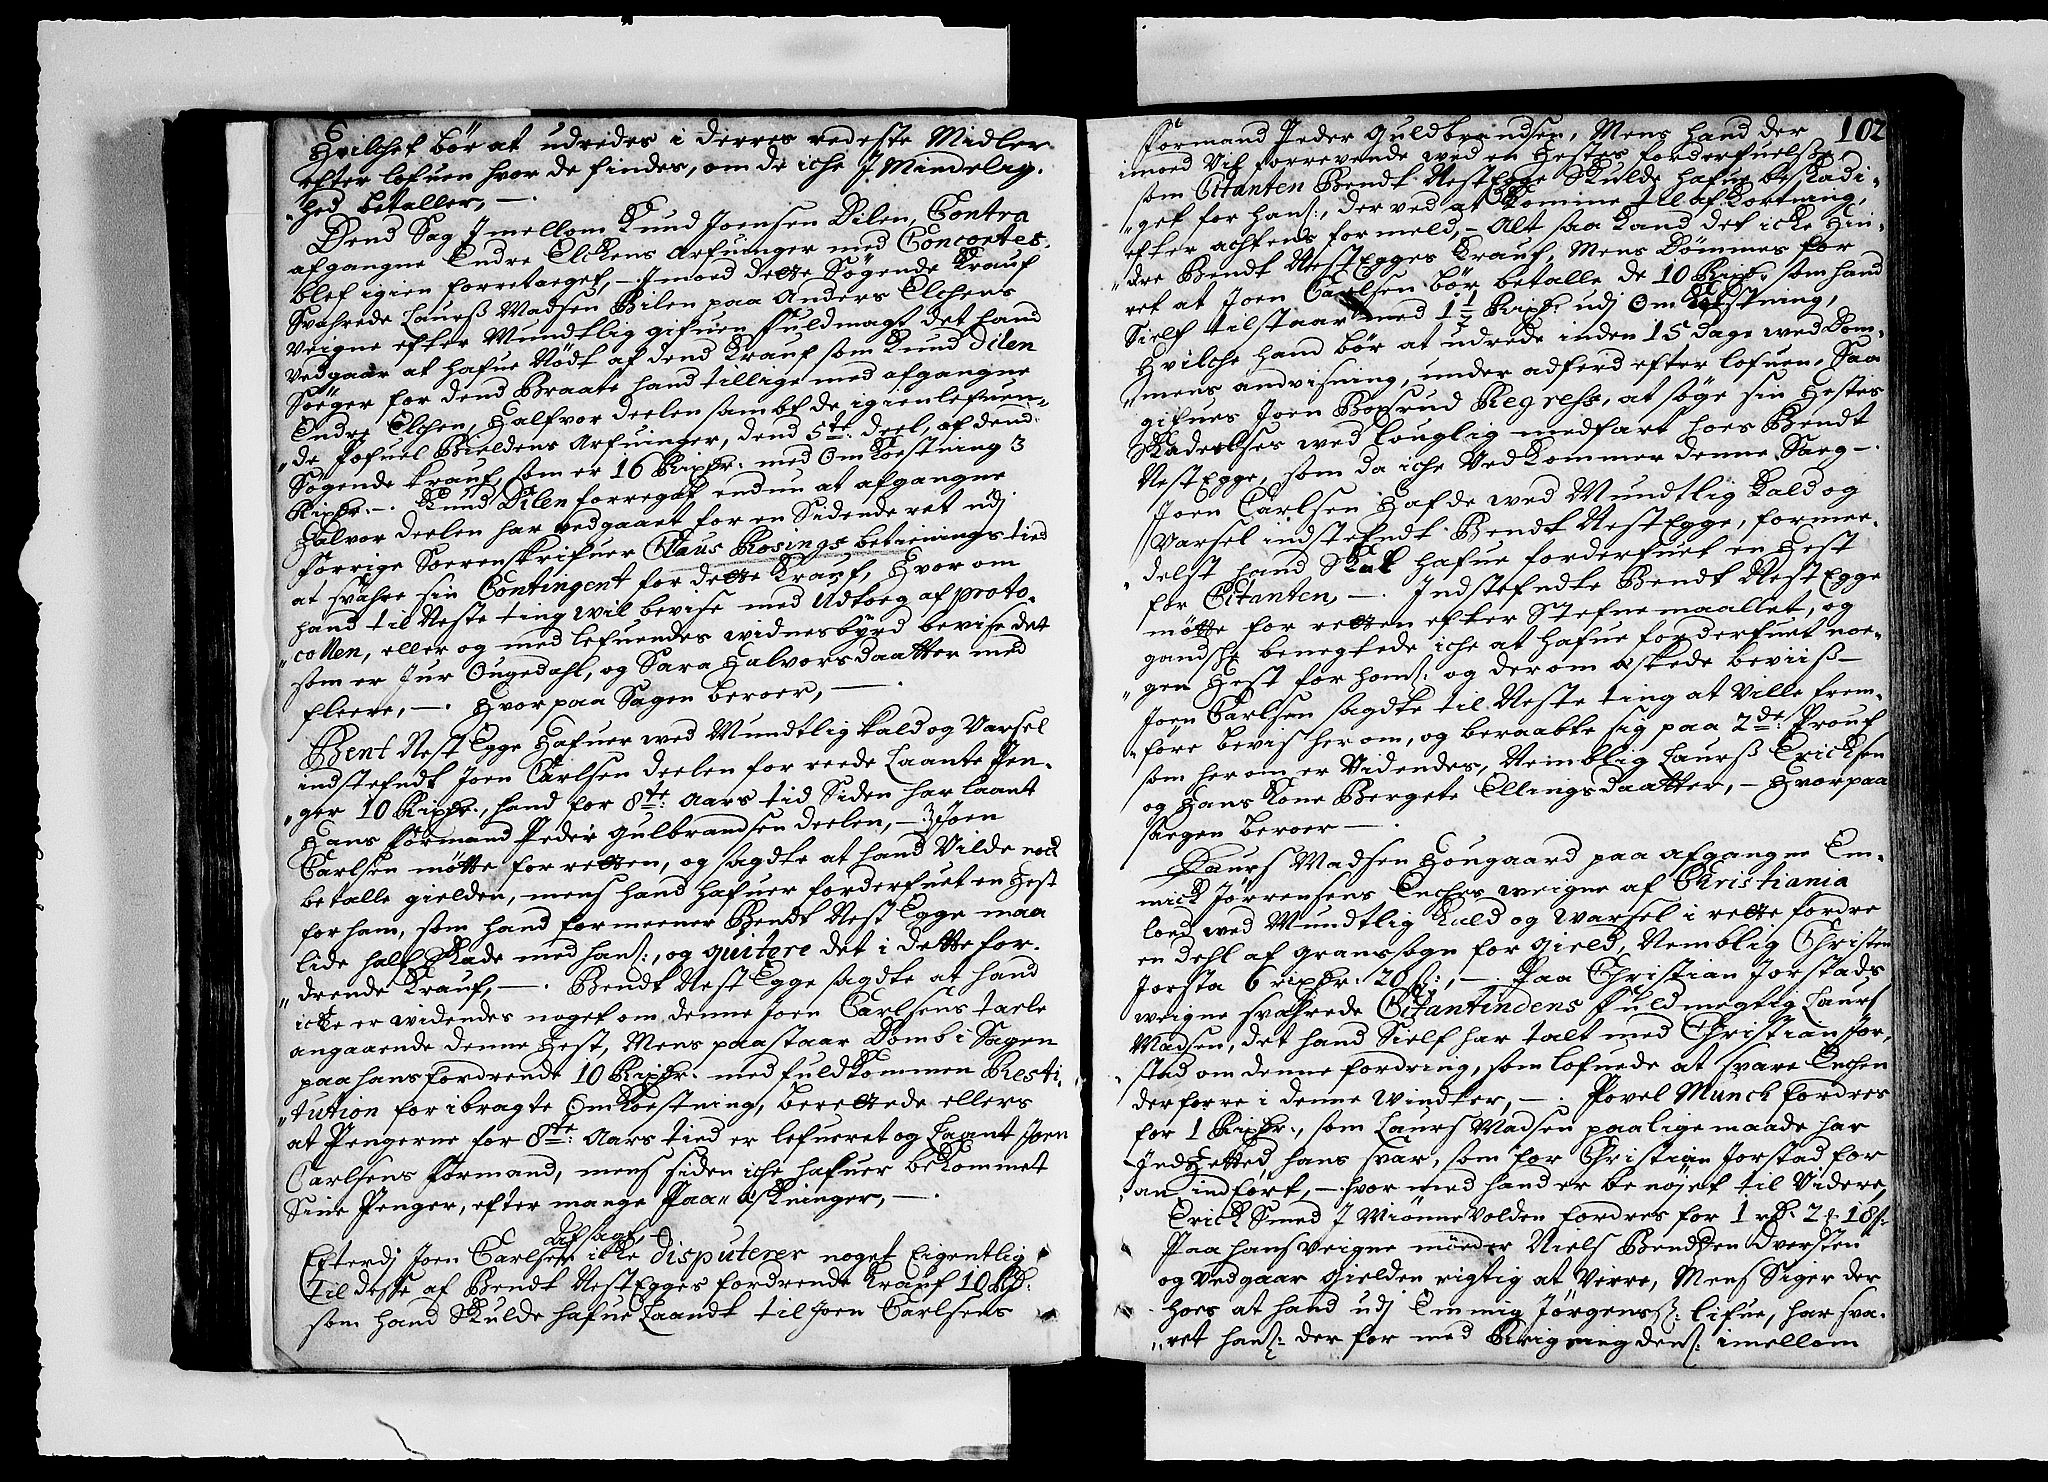 Hvilchet bör at udredes i derres redeste Midler
efter lofuen hvor de findes, om de iche J Mindelig-
"hed betaller, —.
Dend Sag Jmellom Knud Joensen Dilen, Contra
afgangne Endre Elchens Arfuinger med Consortes.
blef igien forretaeget, — Jmod dette Søgende Krauf
Svahrede Laurß Madsen Bilen paa Anders Elchens
Veigne efter Mundtlig gifuen fuldmagt det hand
Vedgaar at hafue Nødt af dend Krauf som Knud Dilen
Søeger for dend Braate hand tillige med afgangne
Endre Elchen, Halfvor deelen sambt de igienlefuen-
"de Pofuel Bieldens Arfuinger, dend 5te: deel, af dend
Søgende krauf, som er 16 Rixdr. med Omkoestning 3
Rixdr. —. Knud Dilen forregaf endnu at afgangne
Halvor deelen har vedgaaet for en Sidende ret udj
forrige Soerenskrifuer Claus Rosings betienings tied
at svahre sin Contingent for dette Krauf, Hvor om
hand til Neste ting vil bevise med Udtoeg af proto-
"collen, eller og med lefuendes widnesbyrd bevise det
som er Jur Ougedahl, og Sara Halvorsdaatter med
fleere, —. Hvorpaa Sagen beroer, —.
Bent NestEgge Hafuer wed Mundtlig kald og Varsel
indstefndt Joen Carlsen deelen for reede Laante Pen-
"ger 10 Rixdr., hand for 8te: Aars tid Siden har laant
Hans formand Peder Gulbrandsen deelen, — Joen
Carlsen mötte for retten, og sagdte at hand Vilde nock
betalle gielden, mens hand hafuer forderfuet en Hest
for ham, som hand formeener Bendt NestEgge maa
lide half skade med hans:, og quitere det i dette for-
"drende Krauf, —. Bendt NestEgge sagdte at hand
icke er widendes noget om denne Joen Carlsens tarle
angaaende denne Hest, Mens paastaar Domb i Sagen
paa hans fordrende 10 Rixdr. med fuldkommen Resti-
"tution for ibragte Omkoestning, berettede ellers
at Pengerne for 8te: Aars tied er lefueret og Laant Joen
Carlsens formand, mens siden iche hafuer bekommet
Sine Penger, efter mange Paa-Eskninger, —.
Afsagt,
Efterdj Joen Carlsen icke disputerer noget Eigentlig
til desse af Bendt NestEgges fordrende Krauf 10 Rd:
som hand Skulde hafue Laandt til Joen Carlsens
102
formand Peder Guldbrandsen, Mens hand der
imod Vil forrevende wed en Hestes forderfuelse,
som Citanten Bendt NestEgge Skulde hafue beskadi-
"get for hans:, der ved at komme til afkortning,
efter achtens formeld, — Alt saa kand det icke Hin-
"dre Bendt NestEgges Krauf, Mens Dömmes for
ret at Joen Carlsen bör betalle de 10 Rixdr. som hand
Sielf tilstaar med 1 1/2 Rixdr. udj Omkostning,
Hvilche hand bör at udrede inden 15 dage wed Dom-
"mens anvisning, under adferd efter lofuen, Saa
gifues Joen Boxrud Regress, at søge sin Hestes
Skadeelses wed louglig medfart hoes Bendt
NestEgge, som da iche Vedkommer denne Saeg —.
Joen Carlsen Hafde wed Mundtlig Kald og
Varsel indstefndt Bendt NestEgge, formee-
"delst hand Skal hafue forderfuet en Hest
for Citanten, —. Jndstefndte Bendt NestEgge
mötte for retten efter Stefnemaallet, og
gandsche benegtede iche at hafue forderfuet noe-
"gen Hest for hans: og der om æskede beviiß —
Joen Carlsen sagdte til Neste ting at Ville frem-
"føre bevis her om, og beraabte sig paa 2de: Prouf
som her om er Videndes, Nemblig Laurß Ericksen
og Hans Kone Bergete Ellingsdaatter, — Hvorpaa
sagen beroer —.
Laurs Madsen Hougaard paa afgangne Em-
mick Jörrensens Enches weigne af Christiania
loed wed Mundtlig kald og warsel i rette fordre
en dehl af granssogn for gield, Nemblig Christen
Jorsta 6 rixdr. 20 ß:, —. Paa Christian Jorstads
weigne svahrede Citantindens fuldmegtig Laurs
Madsen, det hand Sielf har talt med Christian Jor-
stad om denne fordring, som lofuede at svare Enchen
derforre i denne Windter, —. Povel Munck fordres
for 1 Rixdr., som Laurs Madsen paa lige maade har
Indhetted hans svar, som for Christian Jorstad for
an indfört, —. hvor med hand er benøjet til Videre,
Erick Smed J Miønnevolden fordres for 1 rd. 2 ₰ 18 ß:
Paa hans veigne mörder Niels Bendßen dversten
og vedgaar gielden rigtig at Verre, Mens Siger der
hoes at hand udj Emmig Jörgensß: lifue, har sva-
"ret hans: der for med Krigning dens: imellom